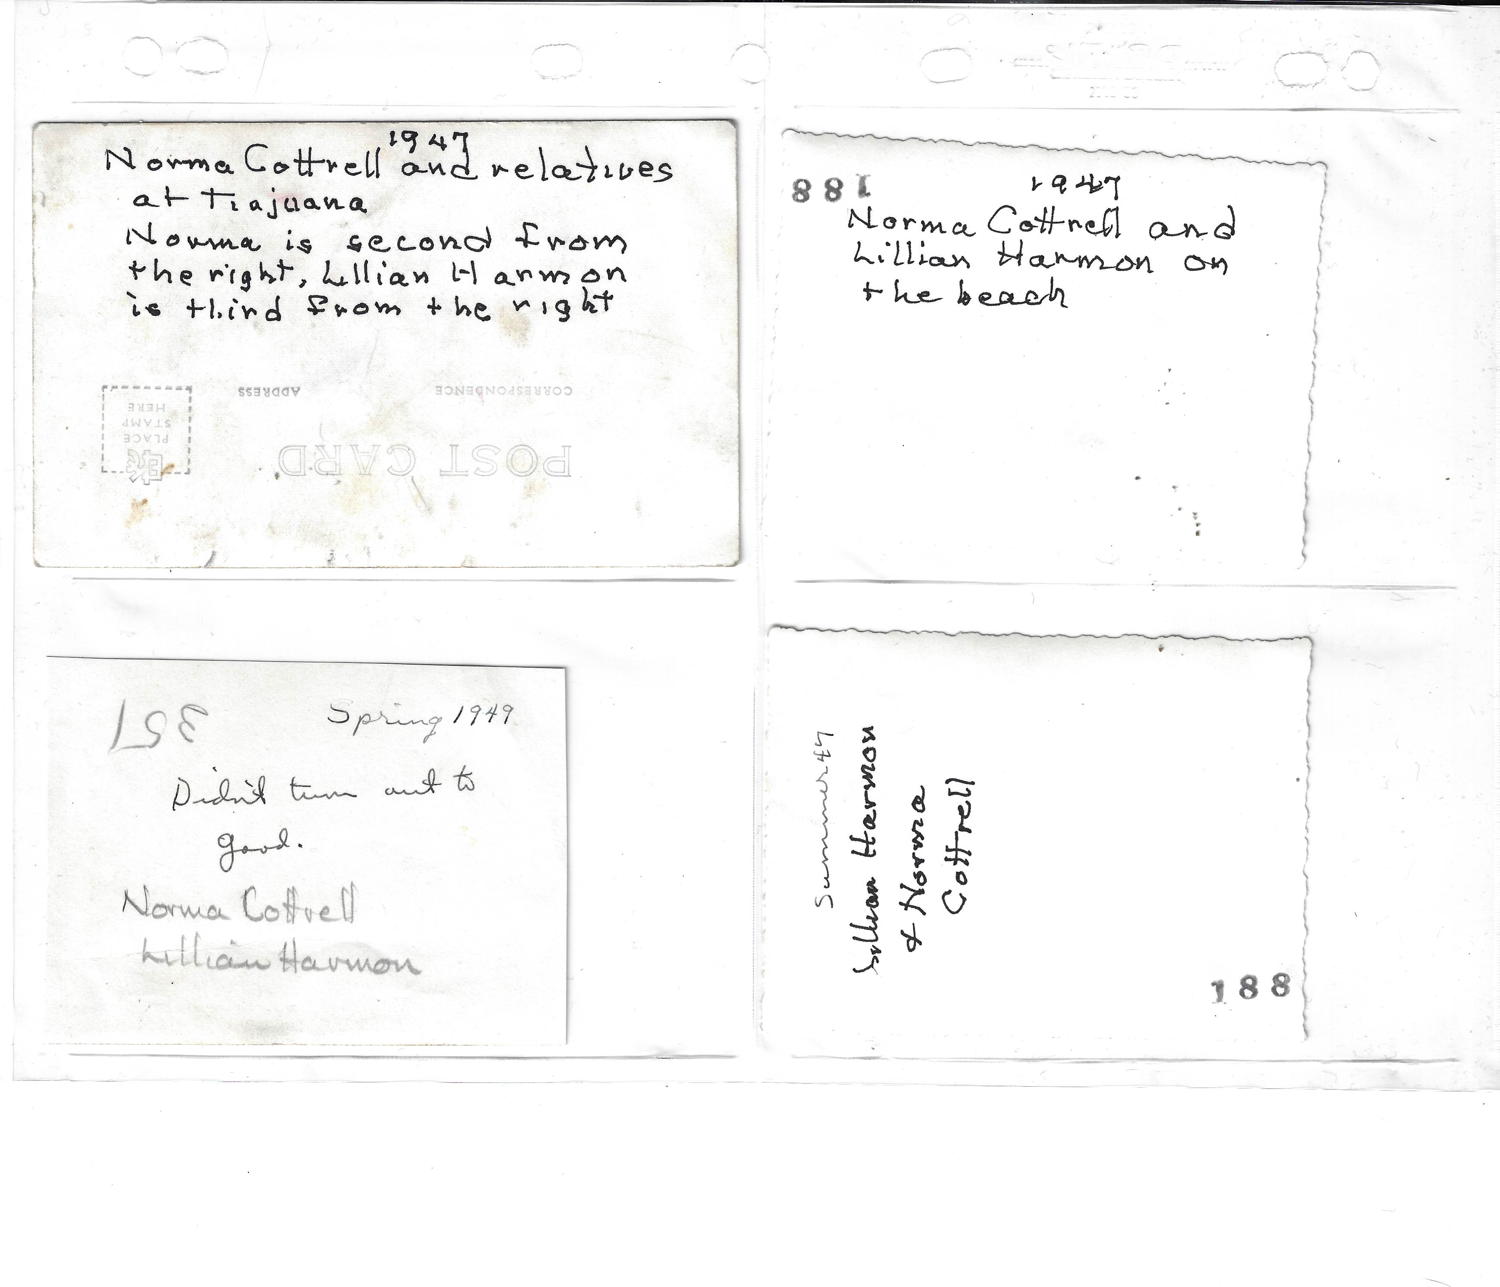 1947
Norma Cottrell and relatives
at Tiajuana
Norma is second from
the right, Lillian Harmon
is third from the right
CORRESPONDENCE
ADDRESS
POST CARD
PLACE
STAMP
HERE
188
1947
Norma Cottrell and
Lillian Harmon on
the beach
351
Spring 1949
Didn't turn out to
good.
Norma Cottrell
Lillian Harmon
Summer 47
Lillian Harmon
& Norma
Cottrell
188